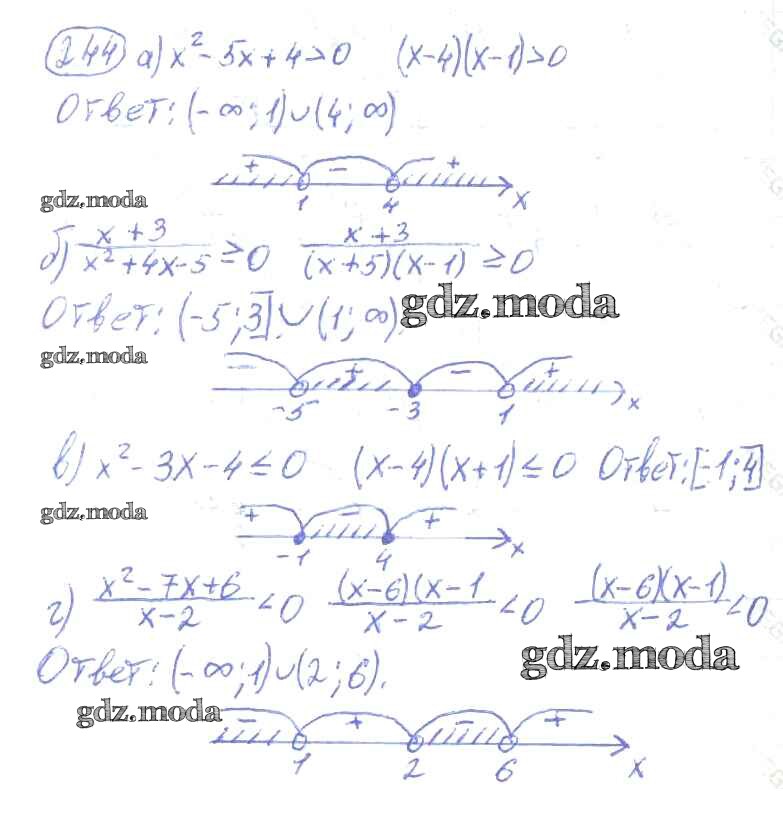 244 а) x² - 5x + 4 > 0 (x-4)(x-1) > 0
Ответ: (-∞; 1) ∪ (4; ∞)
+ - +
1 4 x
gdz.moda
б) x+3 / x²+4x-5 ≥ 0 x+3 / (x+5)(x-1) ≥ 0
Ответ: (-5; 3] ∪ (1; ∞).
gdz.moda
gdz.moda
- + - +
-5 -3 1 x
в) x² - 3x - 4 ≤ 0 (x-4)(x+1) ≤ 0 Ответ: [-1; 4]
gdz.moda
+ - +
-1 4 x
г) x²-7x+6 / x-2 < 0 (x-6)(x-1 / x-2 < 0 (x-6)(x-1) / x-2 < 0
Ответ: (-∞; 1) ∪ (2; 6).
gdz.moda
gdz.moda
- + - +
1 2 6 x